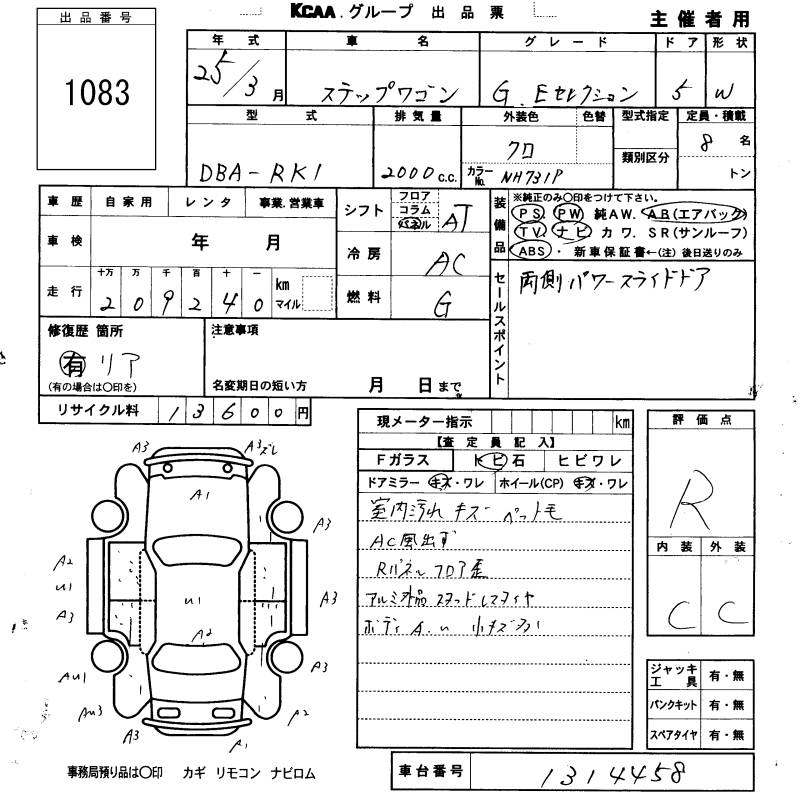 KCAA.グループ 出品票
主催者用
出品番号
1083
年式 車名 グレード ドア 形状
25/3月 ステップワゴン G.Eセレクション 5 W
型式 排気量 外装色 色替 型式指定 定員・積載
DBA-RK1 2000c.c. クロ 8名
カラーNo. NH731P 類別区分 トン
車歴 自家用 レンタ 事業.営業車
車検 年 月
走行 十万 万 千 百 十 一 km マイル
2 0 9 2 4 0
シフト フロア コラム パネル AT
冷房 AC
燃料 G
装備品
※純正のみ〇印をつけて下さい。
PS. PW 純AW. AB(エアバック)
TV. ナビ カワ. SR(サンルーフ)
ABS. 新車保証書←(注)後日送りのみ
セールスポイント
両側パワースライドドア
修復歴 箇所
有 リア
(有の場合は〇印を)
注意事項
名変期日の短い方 月 日まで
リサイクル料 13600円
現メーター指示 km
【査定員記入】
Fガラス トビ石 ヒビワレ
ドアミラー キズ・ワレ ホイール(CP) キズ・ワレ
室内汚れ キズ ペット毛
AC風出ず
Rパネル フロア歪
アルミ社品 スタッドレスタイヤ
ボディA.U 小キズ
評価点
R
内装 外装
C C
ジャッキ工具 有・無
パンクキット 有・無
スペアタイヤ 有・無
A3 A3ズレ
A1
A3 A3
A2
U1 U1 A3
A3 A2
AU1 A3
AU3 A2
A3 A1
事務局預り品は〇印 カギ リモコン ナビロム
車台番号 1314458